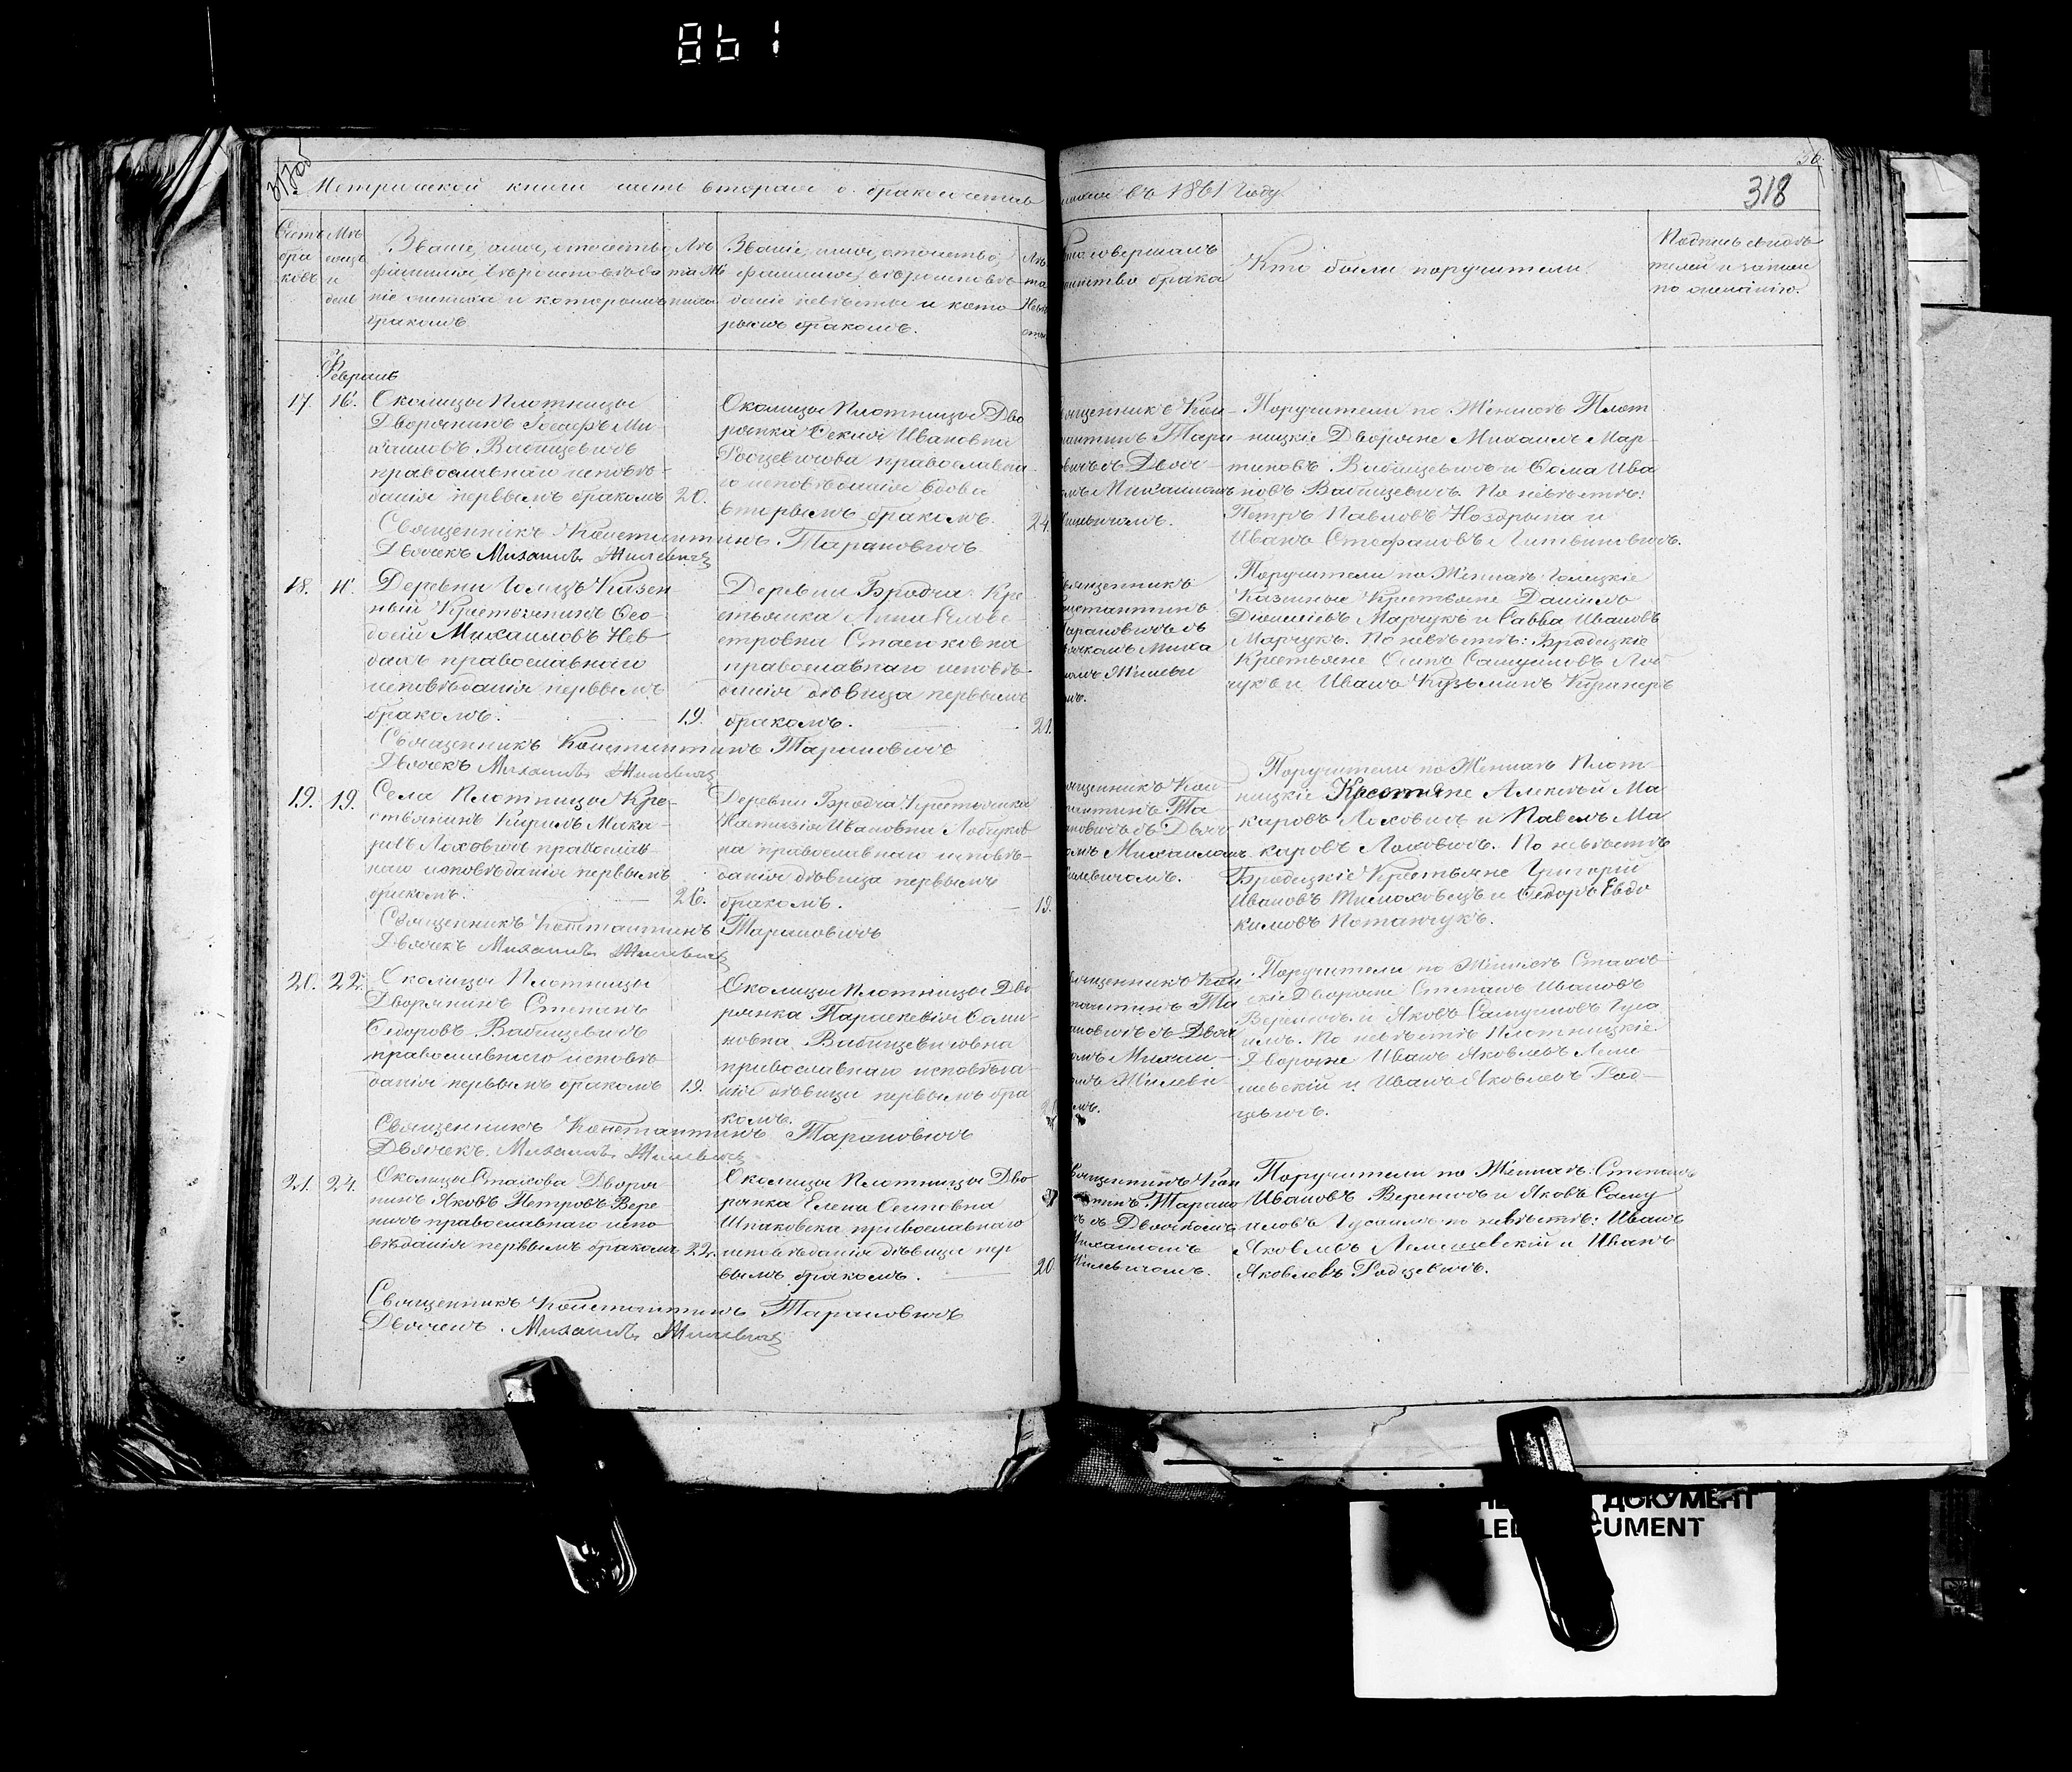 861
Метрической книги часть вторая о бракосочетав
шихся въ 1861 Году.
318
Счетъ бра ковъ
Мѣ сяцъ и день
Званіе, имя, отчество,
фамилія, вѣроисповѣда
ніе жениха и которымъ
бракомъ
Лѣ та Же ниха
Званіе, имя, отчество,
фамилія, вѣроисповѣ
даніе невѣсты и кото
рымъ бракомъ.
Лѣ та Невѣ сты
Кто совершалъ
таинство брака
Кто были поручители.
Подпись свидѣ
телей и записи
по желанію.
Февраль
17. 16.
Околицы Плотницы
Дворянинъ Іосифъ Ми
хаиловъ Вабищевичъ
православнаго исповѣ-
данія первымъ бракомъ 20.
Околицы Плотницы Дво
рянка Ѳекла Ивановна
Родцевичова православна
го исповѣданія вдова
вторымъ бракомъ. 24.
Священникъ Кон-
стантинъ Тара-
новичъ съ Дьяч-
комъ Михаиломъ
Жилевичомъ.
Поручители по Женихѣ Плот
ницкіе Дворяне Михаилъ Мар-
тиновъ Вабищевичъ и Ѳома Ива
новъ Вабищевичъ. По невѣстѣ:
Петръ Павловъ Ноздрына и
Иванъ Стефановъ Литвиновичъ.
Священникъ Константинъ Тарановичъ
Дьячекъ Михаилъ Жилевичъ
18.
Деревни Голецъ Казен-
ный Крестьянинъ Ѳео-
досій Михаиловъ Нев
дахъ православнаго
исповѣданія первымъ
бракомъ. 19.
Деревни Бродча Кре-
стьянка Анна
Стасюковна
православнаго исповѣ-
данія дѣвица первымъ
бракомъ. 21.
Священникъ
Константинъ
Тарановичъ съ
Дьячкомъ Миха
иломъ Жилеви
чомъ.
Поручители по Женихѣ Голецкіе
Казенные Крестьяне Даніилъ
Марчукъ и Савва Ивановъ
Марчукъ. По невѣстѣ: Бродецкіе
Крестьяне Осипъ Самуиловъ Лоб
чукъ и Иванъ Кузьминъ
Священникъ Константинъ Тарановичъ
Дьячекъ Михаилъ Жилевичъ
19. 19.
Села Плотницы Кре-
стьянинъ Кирилъ Мака-
ровъ Лоховичъ православ-
наго исповѣданія первымъ
бракомъ. 26.
Деревни Бродча Крестьянка
Ивановна Лобчуков
на православнаго исповѣ-
данія дѣвица первымъ
бракомъ. 19.
Священникъ Кон
стантинъ Та
рановичъ съ Дьяч
комъ Михаиломъ
Жилевичомъ.
Поручители по Женихѣ Плот-
ницкіе Крестьяне Алексѣй Ма
каровъ Лоховичъ и Павелъ Ма
каровъ Лоховичъ. По невѣстѣ
Бродецкіе Крестьяне Григорій
Ивановъ Тимоховецъ и Ѳедоръ Евдо
кимовъ Потапчукъ.
Священникъ Константинъ Тарановичъ
Дьячекъ Михаилъ Жилевичъ
20. 22.
Околицы Плотницы
Дворянинъ Степанъ
Ѳедоровъ Вабищевичъ
православнаго исповѣ
данія первымъ бракомъ 19.
Околицы Плотницы Дво
рянка Параскевія Ѳоми-
новна Вабищевичовна
православнаго исповѣда-
нія дѣвица первымъ бра
комъ.
Священникъ Кон
стантинъ Та
рановичъ съ Дьяч
комъ Михаи-
ломъ Жилеви-
чомъ.
Поручители по Женихѣ Стахов
скіе Дворяне Степанъ Ивановъ
Вереничъ и Яковъ Самуиловъ Гуса
имъ. По невѣстѣ Плотницкіе
Дворяне Иванъ Яковлевъ Леме-
шевскій и Иванъ Яковлевъ Род-
цевичъ.
Священникъ Константинъ Тарановичъ
Дьячекъ Михаилъ Жилевичъ
21. 24.
Околицы Стахова Дворя
нинъ Яковъ Петровъ Вере
ничъ православнаго испо
вѣданія первымъ бракомъ 22.
Околицы Плотницы Дво
рянка Елена Осиповна
Шпаковска православнаго
исповѣданія дѣвица пер
вымъ бракомъ. 20.
Священникъ Кон
стантинъ Тарано
вичъ съ Дьячкомъ
Михаиломъ
Жилевичомъ.
Поручители по Женихѣ: Степанъ
Ивановъ Вереничъ и Яковъ Саму
иловъ Гусаимъ по невѣстѣ: Иванъ
Яковлевъ Лемешевскій и Иванъ
Яковлевъ Родцевичъ.
Священникъ Константинъ Тарановичъ
Дьячекъ Михаилъ Жилевичъ
ДОКУМЕНТ
CUMENT